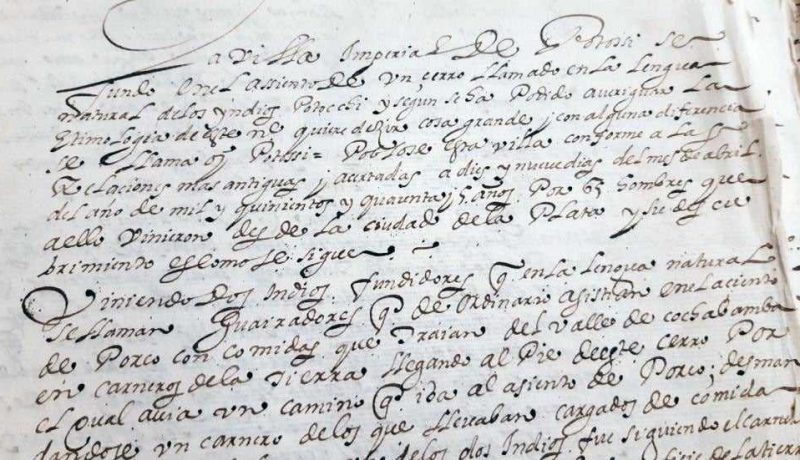 La Villa Imperial De Potosi se
fundo en el assiento de un cerro llamado en la lengua
natural de los yndios Potocchi y segun se ha Podido averiguar La
etimologia de este ne quiere dezir cosa grande y con alguna diferencia
se llama oy Potossi = Poblose esta villa conforme a las
Relaciones mas antiguas y acertadas a dies y nueve dias del mes de abril
del año de mil y quinientos y quarenta y 5 años. Por 65 hombres que
aello Vinieron desde la ciudad de la Plata y su descu
brimiento es como se sigue
Viniendo Dos Indios fundidores q en la lengua natural
se llaman Guairadores q de ordinario asistian en el aciento
de Porco con comidas que traian del Valle de cochabamba
en carneros de la tierra llegando al Pie deeste cerro Por
el qual avia un camino q iba al asiento de Porco; desman
dandose un carnero de los que llevaban cargados de comida
de los dos Indios fue siguiendo el carne
de la tierra